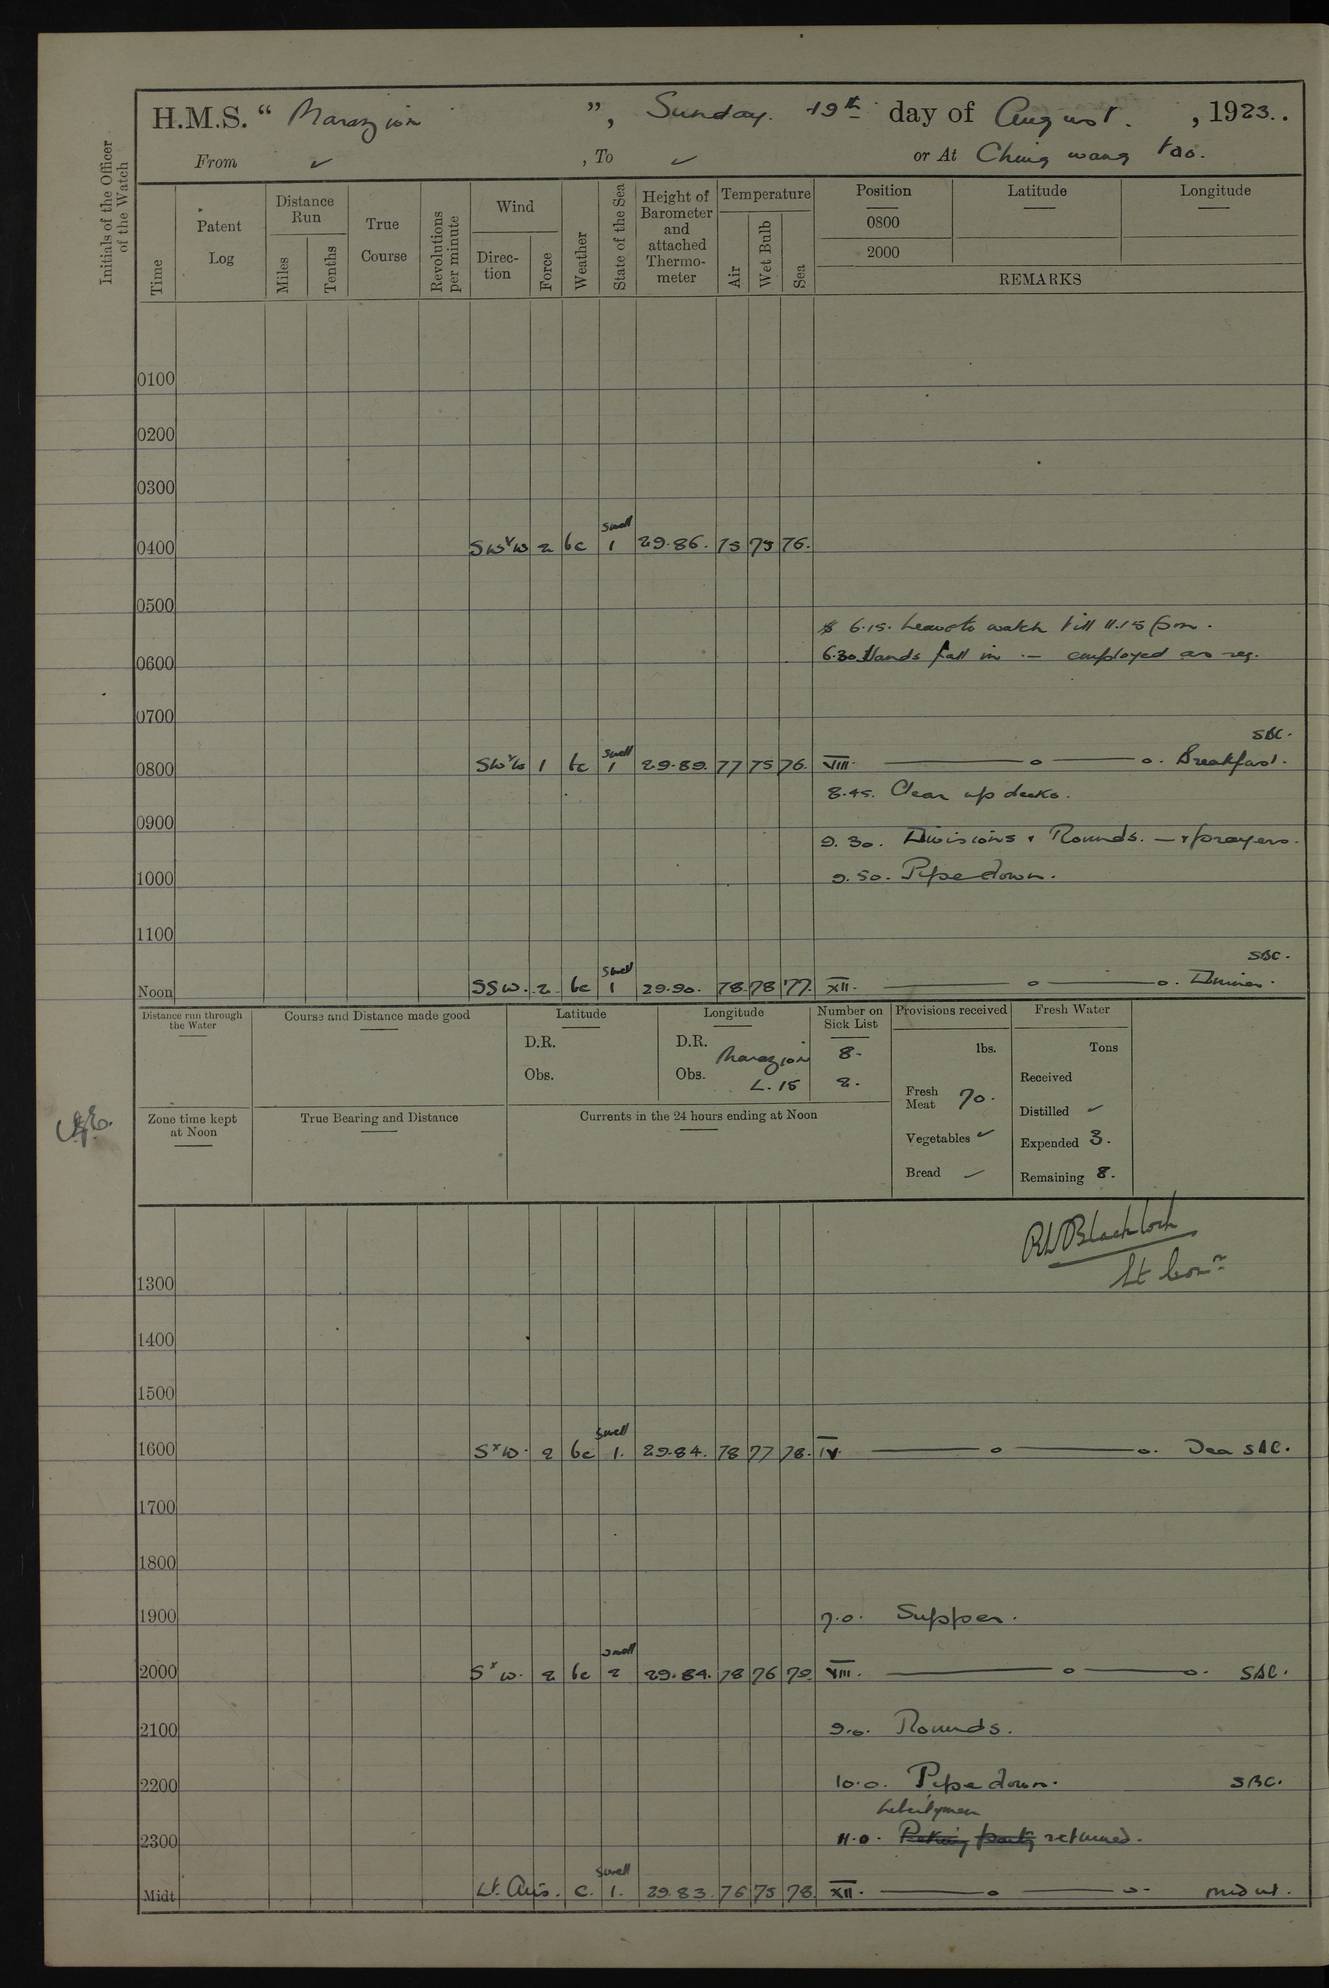 H.M.S. “ Marazion ”, Sunday. 19th day of August. , 1923..
From ✓ , To ✓ or At Ching wang tao.
Initials of the Officer of the Watch
Time
Patent Log
Distance Run
Miles
Tenths
True Course
Revolutions per minute
Wind
Direction
Force
Weather
State of the Sea
Height of Barometer and attached Thermometer
Temperature
Air
Wet Bulb
Sea
Position
Latitude
Longitude
0800
2000
REMARKS
0100
0200
0300
swell
0400 SWxW 2 bc 1 29.86. 75 75 76.
0500
6.15. Leave to watch till 11.15 pm.
6.30 Hands fall in — employed as req.
0600
0700
SBC.
swell
0800 SWxW 1 bc 1 29.89. 77 75 76. VIII. —o—o. Breakfast.
8.45. Clear up decks.
0900
9.30. Divisions & Rounds. — & prayers.
1000
9.50. Pipe down.
1100
SBC.
swell
Noon SSW. 2 bc 1 29.90. 78 78 77. XII. —o—o. Dinner.
Distance run through the Water
Course and Distance made good
Latitude
D.R.
Obs.
Longitude
D.R.
Obs.
Number on Sick List
Marazion 8.
L.15 2.
Provisions received
lbs.
Fresh Meat 70.
Vegetables ✓
Bread ✓
Fresh Water
Tons
Received
Distilled ✓
Expended 3.
Remaining 8.
Zone time kept at Noon
True Bearing and Distance
Currents in the 24 hours ending at Noon
RWBlacklock
Lt Comr
1300
1400
1500
swell
1600 SxW. 2 bc 1. 29.84. 78 77 78. IV. —o—o. Tea SBC.
1700
1800
1900 7.0. Supper.
swell
2000 SxW. 2 bc 2 29.84. 78 76 79 VIII. —o—o. SBC.
2100 9.0. Rounds.
2200 10.0. Pipe down. SBC.
Libertymen
2300 11.0. Peking party returned.
swell
Midt Lt. Airs. c. 1. 29.83. 76 75 78. XII. —o—o. midnt.